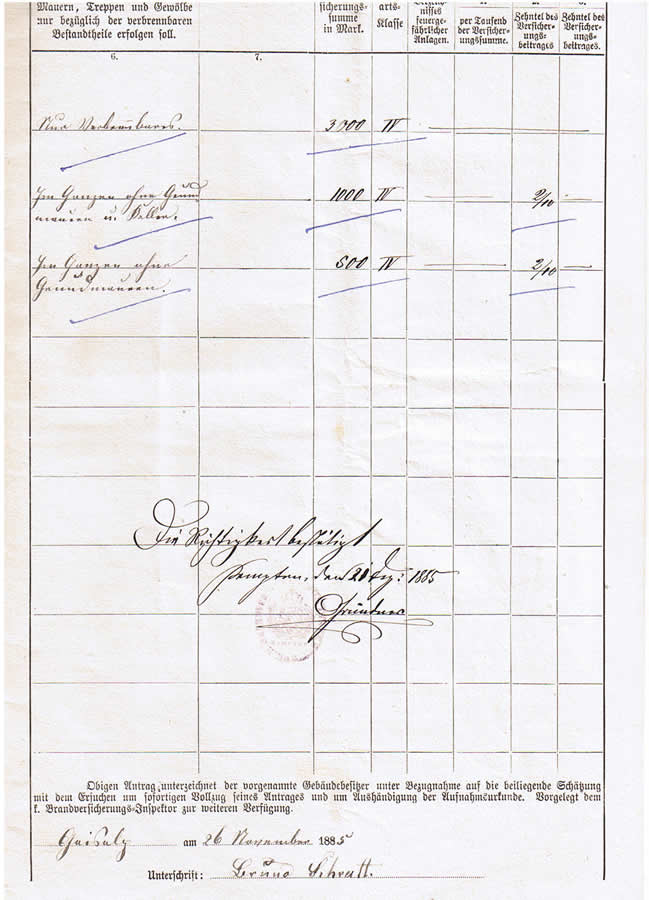 Mauern, Treppen und Gewölbe
nur bezüglich der verbrennbaren
Bestandtheile erfolgen soll.
sicherungs-
summe
in Mark.
arts-
Klasse
nisses
feuerge-
fährlicher
Anlagen.
per Tausend
der Versicher-
ungssumme.
Zehntel des
Versicher-
ungs-
beitrages
Zehntel des
Versicher-
ungs-
beitrages.
6.
7.
Nur Verbrennbares.
3000
IV
Im Ganzen ohne Grund
mauern u. Keller.
1000
IV
2/10
Im Ganzen ohne
Grundmauern.
500
IV
2/10
Die Richtigkeit bestätigt
Kempten, den 21 Dez: 1885
Gründner
Obigen Antrag unterzeichnet der vorgenannte Gebäudebesitzer unter Bezugnahme auf die beiliegende Schätzung
mit dem Ersuchen um sofortigen Vollzug seines Antrages und um Aushändigung der Aufnahmsurkunde. Vorgelegt dem
k. Brandversicherungs-Inspektor zur weiteren Verfügung.
Gaisalp am 26 November 1885
Unterschrift: Bruno Schratt.